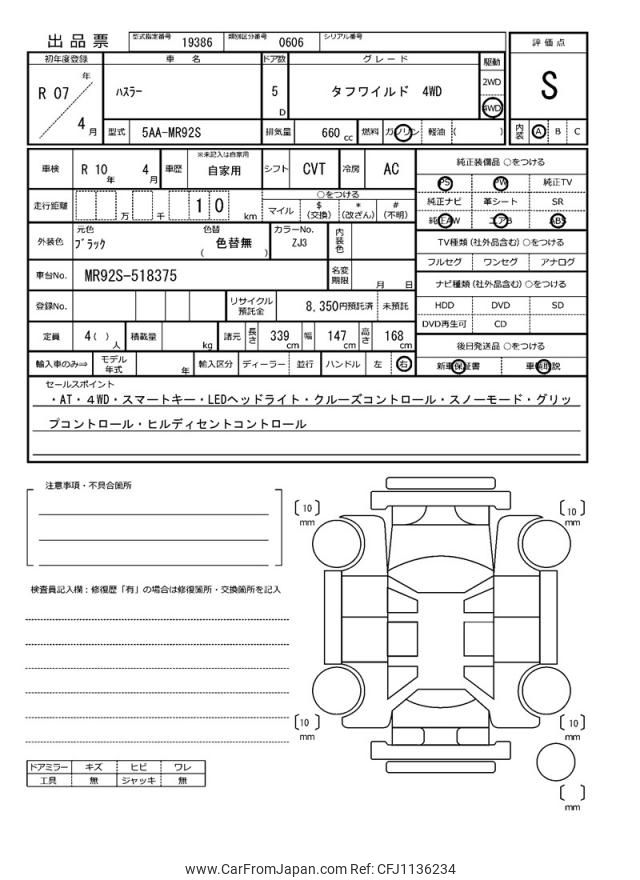 出品票 型式指定番号 19386 類別区分番号 0606 シリアル番号
評価点
S
内装 A B C
初年度登録 車名 ドア数 グレード 駆動
R 07 年 4 月 ハスラー 5 D タフワイルド 4WD 2WD 4WD
型式 5AA-MR92S 排気量 660 cc 燃料 ガソリン 軽油 ( )
車検 R 10 年 4 月 車歴 ※未記入は自家用 自家用 シフト CVT 冷房 AC
純正装備品 ○をつける
PS PW 純正TV
純正ナビ 革シート SR
純正AW エアB ABS
走行距離 万 千 1 0 km ○をつける
マイル $(交換) *(改ざん) #(不明)
外装色 元色 ブラック 色替 ( 色替無 ) カラーNo. ZJ3 内装色
TV種類(社外品含む)○をつける
フルセグ ワンセグ アナログ
車台No. MR92S-518375 名変期限 月 日
ナビ種類(社外品含む)○をつける
HDD DVD SD
DVD再生可 CD
登録No. リサイクル預託金 8,350円預託済 未預託
定員 4( ) 人 積載量 kg 諸元 長さ 339 cm 幅 147 cm 高さ 168 cm
後日発送品 ○をつける
新車保証書 車輌取説
輸入車のみ⇒ モデル年式 年 輸入区分 ディーラー 並行 ハンドル 左 右
セールスポイント
・AT・4WD・スマートキー・LEDヘッドライト・クルーズコントロール・スノーモード・グリッ
プコントロール・ヒルディセントコントロール
注意事項・不具合箇所
検査員記入欄:修復歴「有」の場合は修復箇所・交換箇所を記入
〔10〕mm
〔10〕mm
〔10〕mm
〔10〕mm
〔 〕mm
ドアミラー キズ ヒビ ワレ
工具 無 ジャッキ 無
www.CarFromJapan.com Ref: CFJ1136234